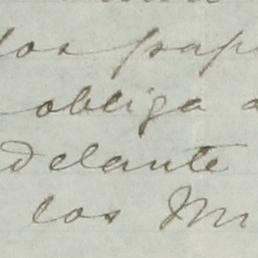 los pape
obliga a
delante
los Mi